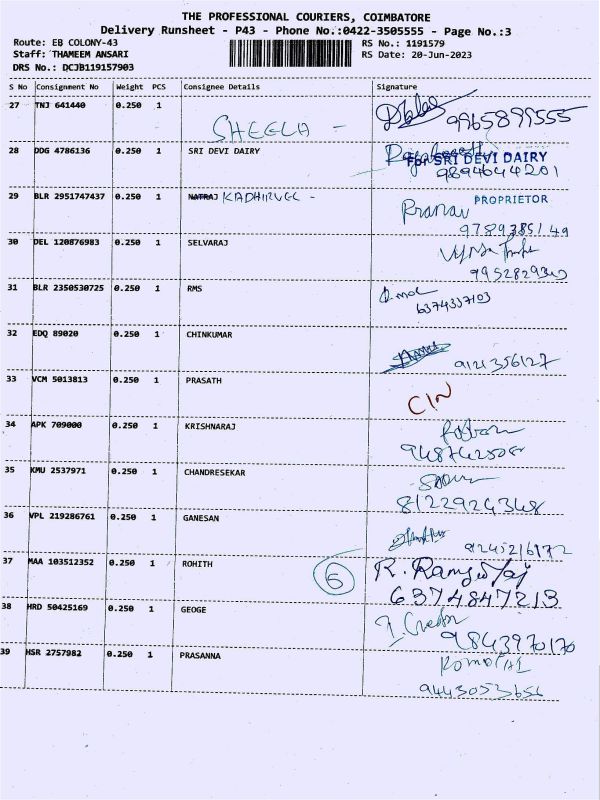 THE PROFESSIONAL COURIERS, COIMBATORE
Delivery Runsheet - P43 - Phone No.:0422-3505555 - Page No.:3
Route: EB COLONY-43
RS No.: 1191579
Staff: THAMEEM ANSARI
RS Date: 20-Jun-2023
DRS No.: DCJB119157903
S No Consignment No Weight PCS Consignee Details Signature
27 TNJ 641440 0.250 1 SHEELA - 9965899555
28 DDG 4786136 0.250 1 SRI DEVI DAIRY For SRI DEVI DAIRY
9894644201
PROPRIETOR
29 BLR 2951747437 0.250 1 NATRAJ KADHIRVEL - Pranav
9789385149
30 DEL 120876983 0.250 1 SELVARAJ
9952829340
31 BLR 2350530725 0.250 1 RMS
6374337103
32 EDQ 89020 0.250 1 CHINKUMAR
9121356127
33 VCM 5013813 0.250 1 PRASATH CIN
34 APK 709000 0.250 1 KRISHNARAJ
35 KMU 2537971 0.250 1 CHANDRESEKAR
8122924348
36 VPL 219286761 0.250 1 GANESAN
37 MAA 103512352 0.250 1 ROHITH 6 R. Ramgu Raj
6374847213
38 HRD 50425169 0.250 1 GEOGE
9843970170
39 HSR 2757982 0.250 1 PRASANNA
9443053656